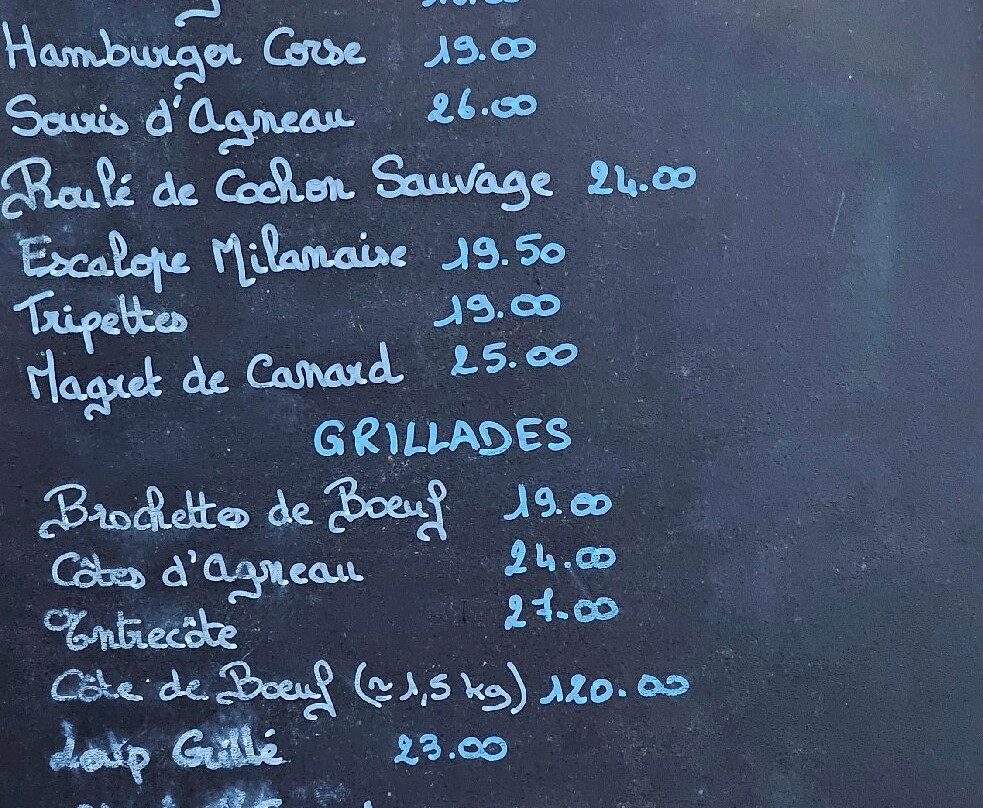 Hamburger Corse 19.00
Souris d'Agneau 26.00
Roulé de Cochon Sauvage 24.00
Escalope Milanaise 19.50
Tripettes 19.00
Magret de Canard 25.00
GRILLADES
Brochettes de Boeuf 19.00
Côtes d'Agneau 24.00
Entrecôte 27.00
Côte de Boeuf (≈1,5 kg) 120.00
Loup Grillé 23.00